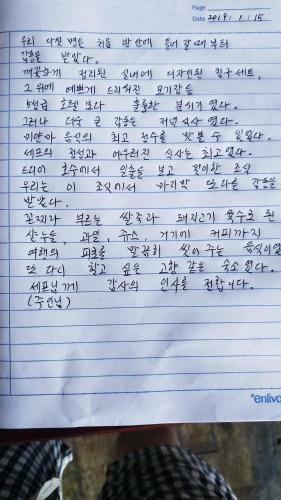 Page
Date 2019. 1. 15
우리 다섯 명은 처음 방 안에 들어 갈 때부터
감동을 받았다.
깨끗하게 정리된 실내에 디자인된 침구세트,
그 위에 예쁘게 드리워진 모기장은
5성급 호텔 보다 훌륭한 분위기였다.
그러나 더욱 큰 감동은 저녁식사 였다.
미얀마 음식의 최고 정수를 맛볼 수 있었다.
셰프의 정성과 어우러진 식사는 최고였다.
드디어 호수에서 일출을 보고 맞이한 조식
우리는 이 조식에서 마지막 또 다른 감동을
받았다.
부르는 쌀국수와 돼지고기 육수로 된
샨누들, 과일, 쥬스, 거기에 커피까지
여행의 피로를 말끔히 씻어 주는 음식이었
또 다시 찾고 싶은 고향 같은 숙소였다.
셰프님께 감사의 인사를 전합니다.
(주인님)